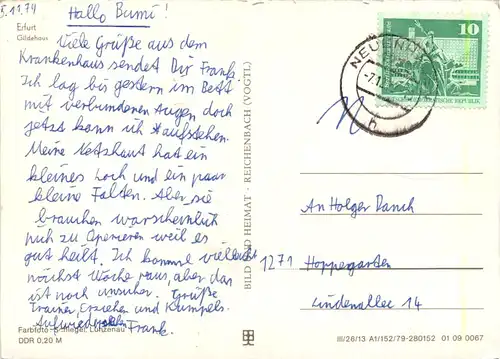 5.11.79
Hallo Bumi!
Erfurt
Gildehaus
Viele Grüße aus dem
Krankenhaus sendet Dir Frank.
Ich lag bis gestern im Bett
mit verbundenen Augen doch
jetzt kann ich aufstehen.
Meine Netzhaut hat ein
kleines Loch und ein paar
kleine Falten. Aber sie
brauchen warscheinlich
nich zu Operieren weil es
gut heilt. Ich komme vielleicht
nächst Woche raus, aber das
ist noch unsicher. Grüße
Trainer, Erzieher und Kumpels.
Aufwiedersehen Frank.
Farbfoto:
DDR 0,20 M
BILD UND HEIMAT · REICHENBACH (VOGTL)
10
An Holger Danch
1271 Hoppegarten
Lindenallee 14
III/26/13 A1/152/79-280152 01 09 0067